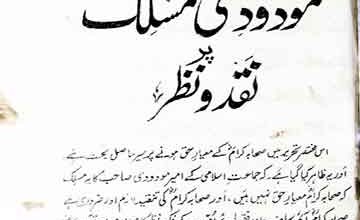 مودودی مسلک
پر
نقد و نظر
اس مختصر تحریر میں صحابہ کرامؓ کے معیارِ حق ہونے پر سیر حاصل بحث ہے۔
اور یہ ظاہر کیا گیا ہے۔ کہ جماعت اسلامی کے امیر مودودی صاحب کا یہ مسلک
کہ صحابہ کرامؓ معیارِ حق نہیں ہیں، اور صحابہ کرامؓ کی تنقید لازم اور ضروری ہے